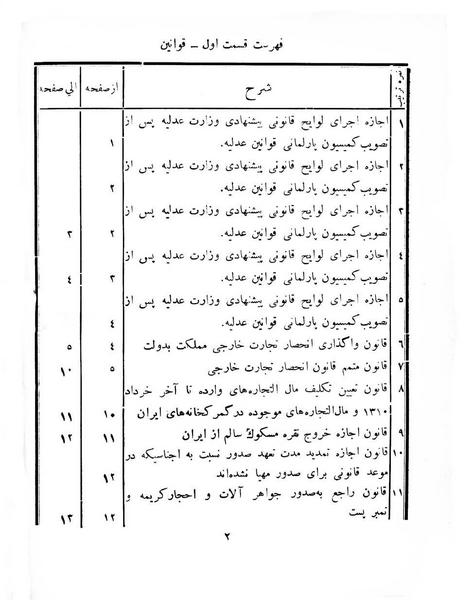 فهرست قسمت اول ـ قوانین
نمره ترتیب شرح از صفحه الی صفحه
۱ اجازه اجرای لوایح قانونی پیشنهادی وزارت عدلیه پس از
تصویب کمیسیون پارلمانی قوانین عدلیه. ۱
۲ اجازه اجرای لوایح قانونی پیشنهادی وزارت عدلیه پس از
تصویب کمیسیون پارلمانی قوانین عدلیه. ۲
۳ اجازه اجرای لوایح قانونی پیشنهادی وزارت عدلیه پس از
تصویب کمیسیون پارلمانی قوانین عدلیه. ۲ ۳
۴ اجازه اجرای لوایح قانونی پیشنهادی وزارت عدلیه پس از
تصویب کمیسیون پارلمانی قوانین عدلیه. ۳ ۴
۵ اجازه اجرای لوایح قانونی پیشنهادی وزارت عدلیه پس از
تصویب کمیسیون پارلمانی قوانین عدلیه. ۴
۶ قانون واگذاری انحصار تجارت خارجی مملکت بدولت ۴ ۵
۷ قانون متمم قانون انحصار تجارت خارجی ۵ ۱۰
۸ قانون تعیین تکلیف مال التجاره‌های وارده تا آخر خرداد
۱۳۱۰ و مال‌التجاره‌های موجوده در گمرکخانه‌های ایران ۱۰ ۱۱
۹ قانون اجازه خروج نقره مسکوک سالم از ایران ۱۱ ۱۲
۱۰ قانون اجازه تمدید مدت تعهد صدور نسبت به اجناسیکه در
موعد قانونی برای صدور مهیا نشده‌اند ۱۲
۱۱ قانون راجع به‌صدور جواهر آلات و احجار کریمه و
تمبر پست ۱۲ ۱۳
۲